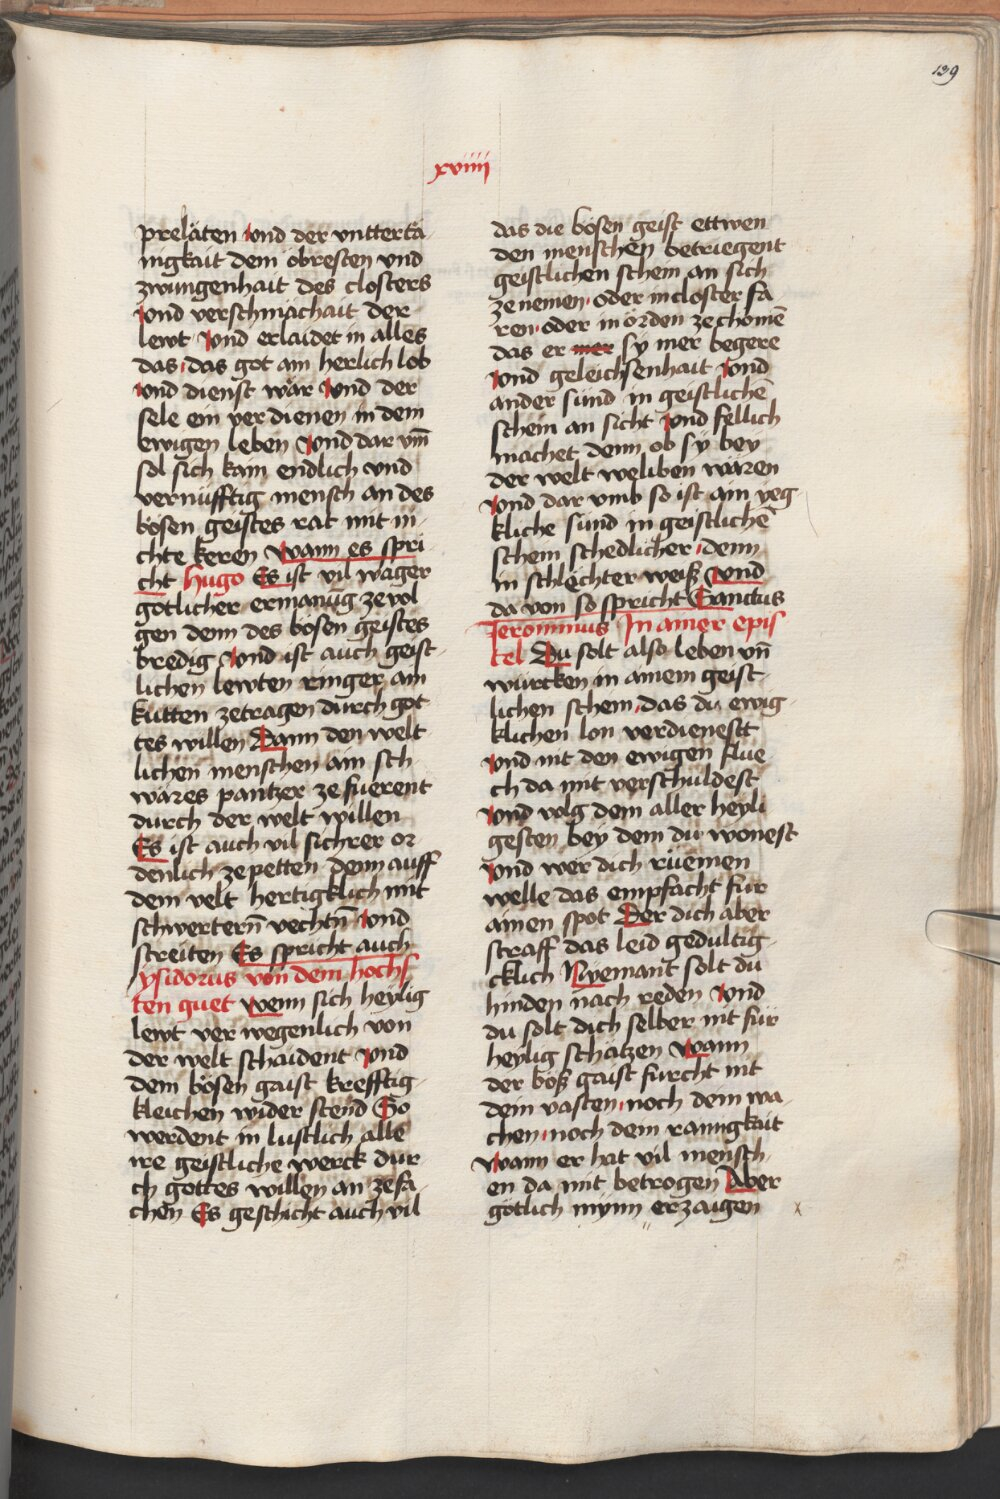 139
xviiii
preläten vnd der vnttertä
nigkait dem öbresten vnd
zwungenhait des closters
vnd verschmächait der
lewt vnd erlaidet in alles
das das got ain herlich lob
vnd dienst wär vnd der
sele ein verdienen in dem
ewigen leben vnd dar vm̄
sol sich kain endlich vnd
vernüfftig mensch an des
bösen geistes rat mit ni
chte keren wann es spri
cht Hugo Es ist vil wäger
götlicher ermanūg ze vol
gen denn des bösen geistes
bredig vnd ist auch geist
lichen lewten ringer ain
kutten zetragen durch got
tes willen Dann den welt
lichen menschen ain sch
wäres pantzer ze fuerent
durch der welt willen
Es ist auch vil sichrer or
denlich ze petten denn auff
dem velt hertigklich mit
schwertern̄ vechtn̄ vnd
streiten Es spricht auch
ysidorus von dem hochs
ten guet wenn sich heylig
lewt ver wegenlich von
der welt schaident vnd
dem bösen gaist krefftig
kleichen wider stend So
werdent in lustlich alle
ire geistliche werck dur
ch gottes willen an zefa
chen Es geschicht auch vil
das die bösen geist ettwen
den menschen betriegent
geistlichen schein an sich
ze nemen oder in closter fa
ren oder in örden ze chömē
das er mer sy mer begere
vnd geleichsenhait vnd
ander sünd in geistlichē
schein an sicht vnd fellich
machet denn ob sy bey
der welt weliben wären
vnd dar vmb so ist ain yeg
kliche sünd in geistlichē
schein schedlicher denn
in schlechter weiß vnd
da von so spricht Sanctus
Jeronimus In ainer epis
tel Du solt also leben vn̄
würcken in ainem geist
lichen schein das du ewig
klichen lon verdienestt
vnd nit den ewigen flue
ch da mit verschuldest
vnd volg dem aller heyli
gesten bey dem du wonest
vnd wer dich rüemen
welle das empfacht für
ainen spot Der dich aber
straff das leid gedultig
cklich Nyemant solt du
hinden nach reden vnd
du solt dich selber nit für
heylig schätzen wann
der böß gaist fürcht nit
dein vasten noch dein wa
chen noch dem rainigkait
wann er hat vil mensch
en da mit betrogen Aber
götlich mynn erzaigen